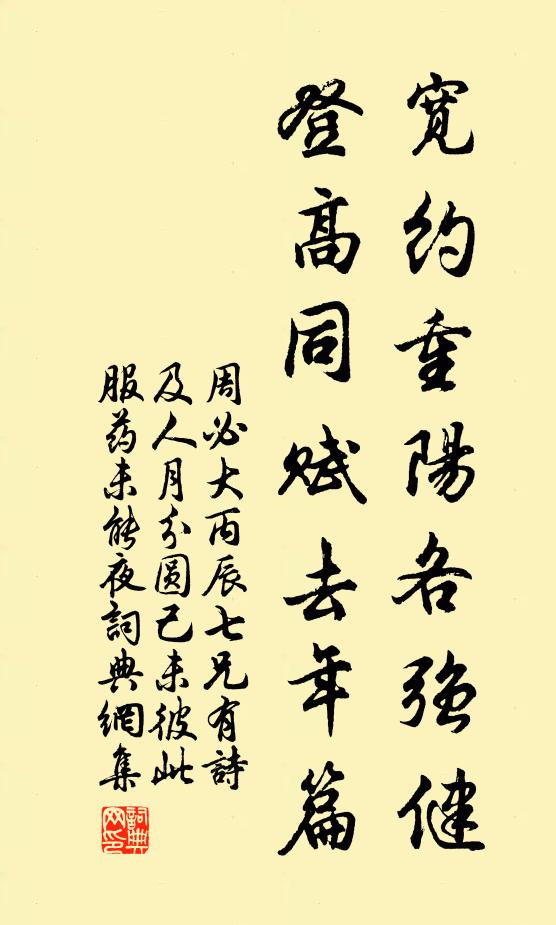 宽约重陽各強健
登高同赋去年篇
周必大丙辰七兄有詩
及人月分圆己未彼此
服药未能夜詞典網集
詞典网印